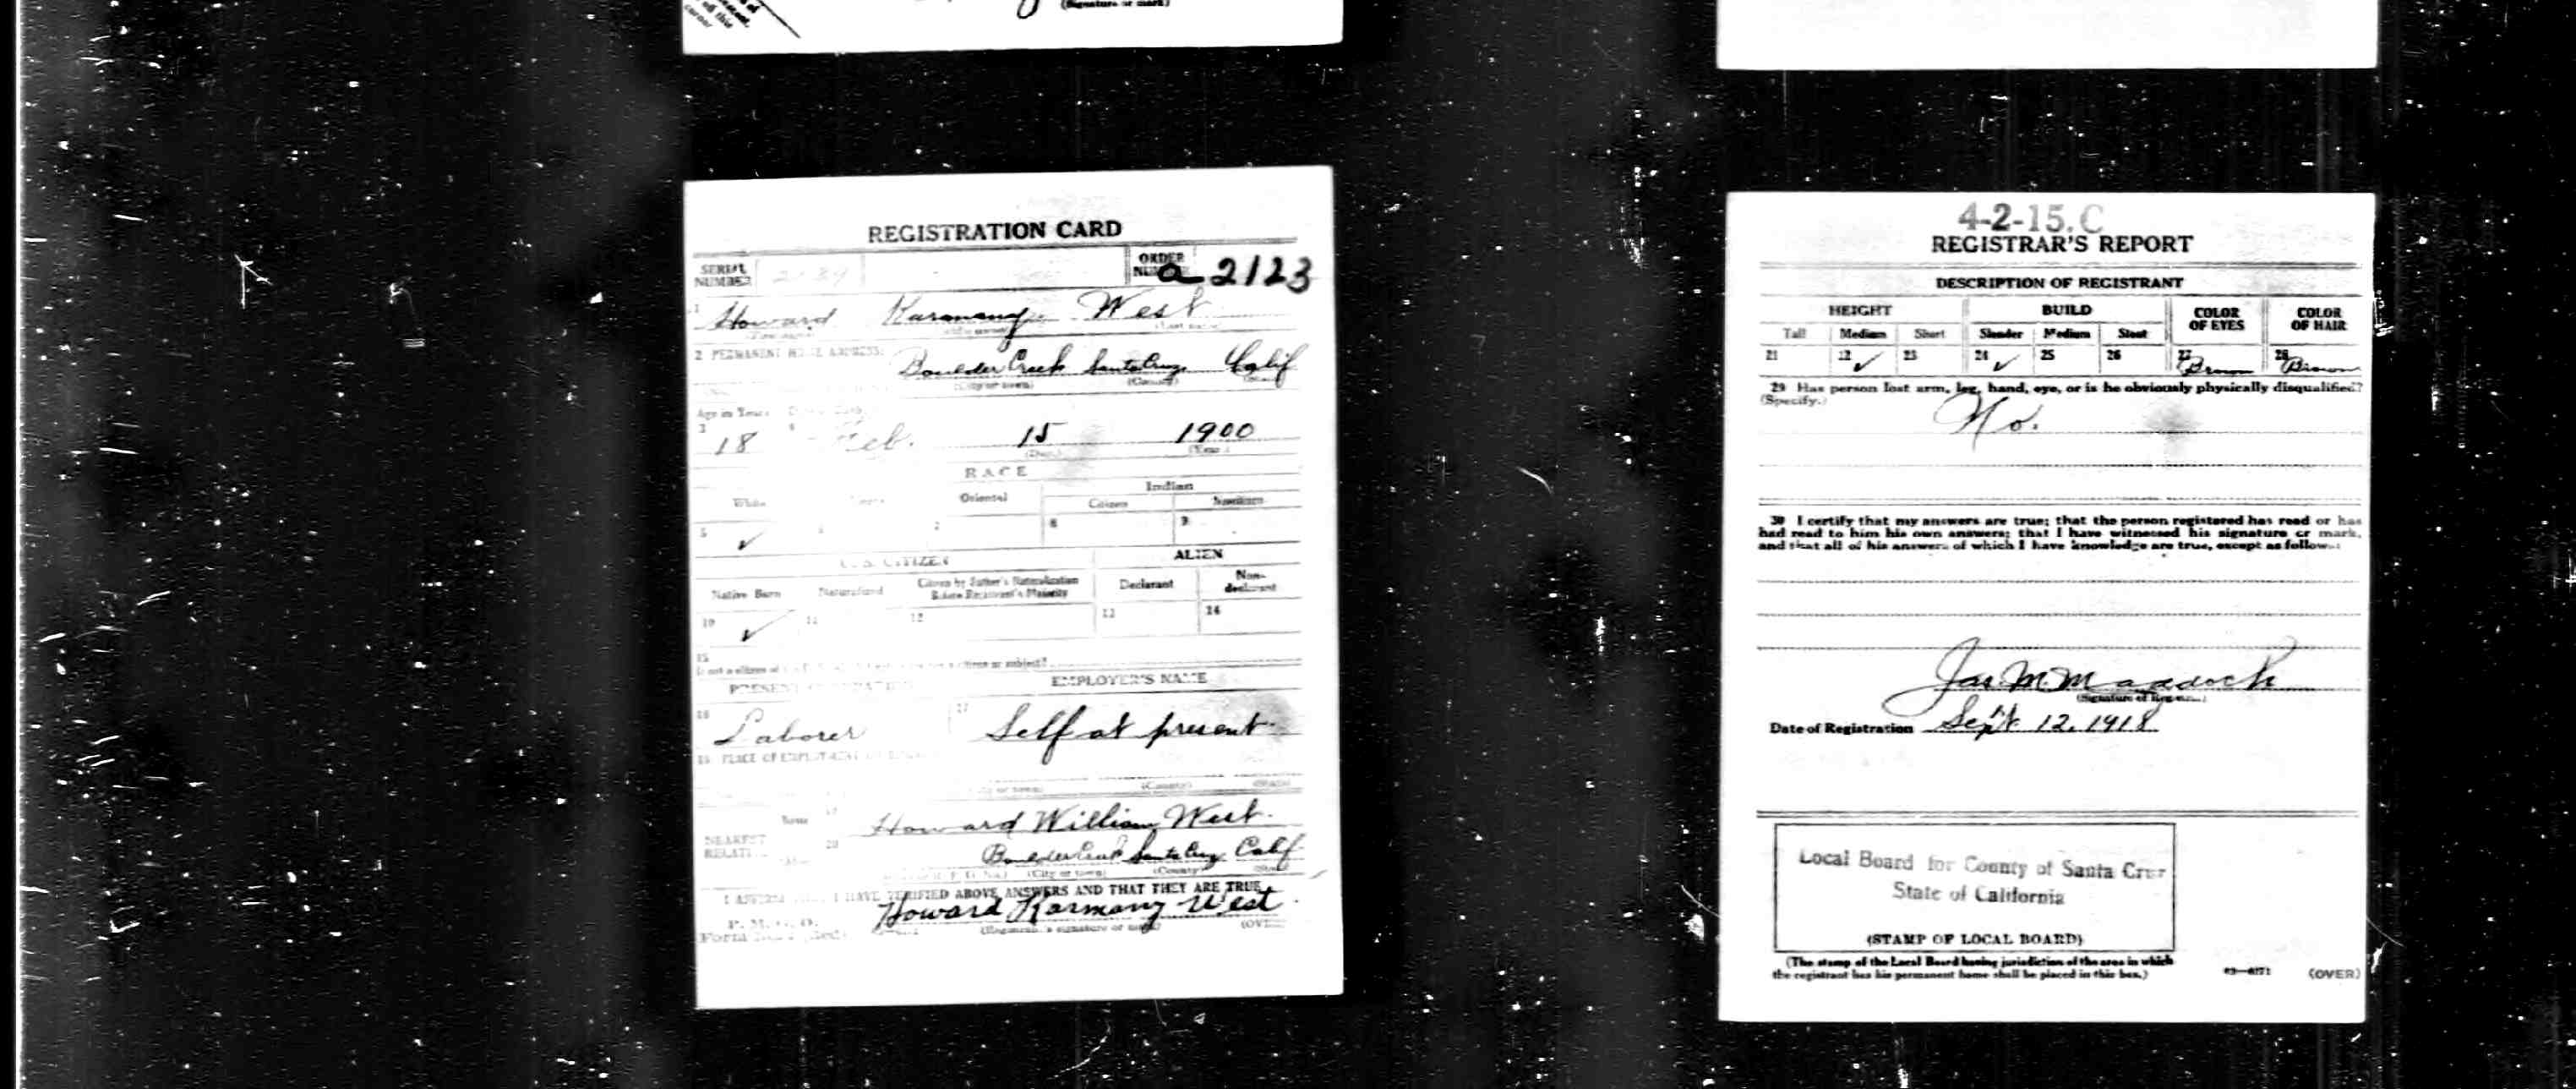 (Signature or mark)
REGISTRATION CARD
SERIAL NUMBER
ORDER NUMBER a 2123
1 Howard Karmany West
2 PERMANENT HOME ADDRESS:
Boulder Creek Santa Cruz Calif
(City or town) (County)
Age in Years
3 18 4 Feb. 15 1900
(Day) (Year)
RACE
White Oriental Indian
Citizen Noncitizen
5 ✓ 7 8 9
U. S. CITIZEN ALIEN
Native Born Naturalized Citizen by Father's Naturalization Before Registrant's Majority Declarant Non-declarant
10 ✓ 11 12 13 14
15
citizen or subject?
PRESENT OCCUPATION EMPLOYER'S NAME
16 Laborer 17 Self at present
PLACE OF EMPLOYMENT
(County) (State)
Name Howard William West.
NEAREST RELATIVE
20 Boulder Creek Santa Cruz Calif
(City or town) (County)
I AFFIRM I HAVE VERIFIED ABOVE ANSWERS AND THAT THEY ARE TRUE
P. M. G. O.
Howard Karmany West
Form (Red) (Registrant's signature or mark) (OVER)
4-2-15.C
REGISTRAR'S REPORT
DESCRIPTION OF REGISTRANT
HEIGHT BUILD COLOR OF EYES COLOR OF HAIR
Tall Medium Short Slender Medium Stout
21 22 ✓ 23 24 ✓ 25 26 27 Brown 28 Brown
29 Has person lost arm, leg, hand, eye, or is he obviously physically disqualified?
(Specify.)
No.
30 I certify that my answers are true; that the person registered has read or has
had read to him his own answers; that I have witnessed his signature or mark,
and that all of his answers of which I have knowledge are true, except as follows:
Jas M. Maddock
(Signature of Registrar)
Date of Registration Sept 12, 1918
Local Board for County of Santa Cruz
State of California
(STAMP OF LOCAL BOARD)
(The stamp of the Local Board having jurisdiction of the area in which
the registrant has his permanent home shall be placed in this box.)
(OVER)